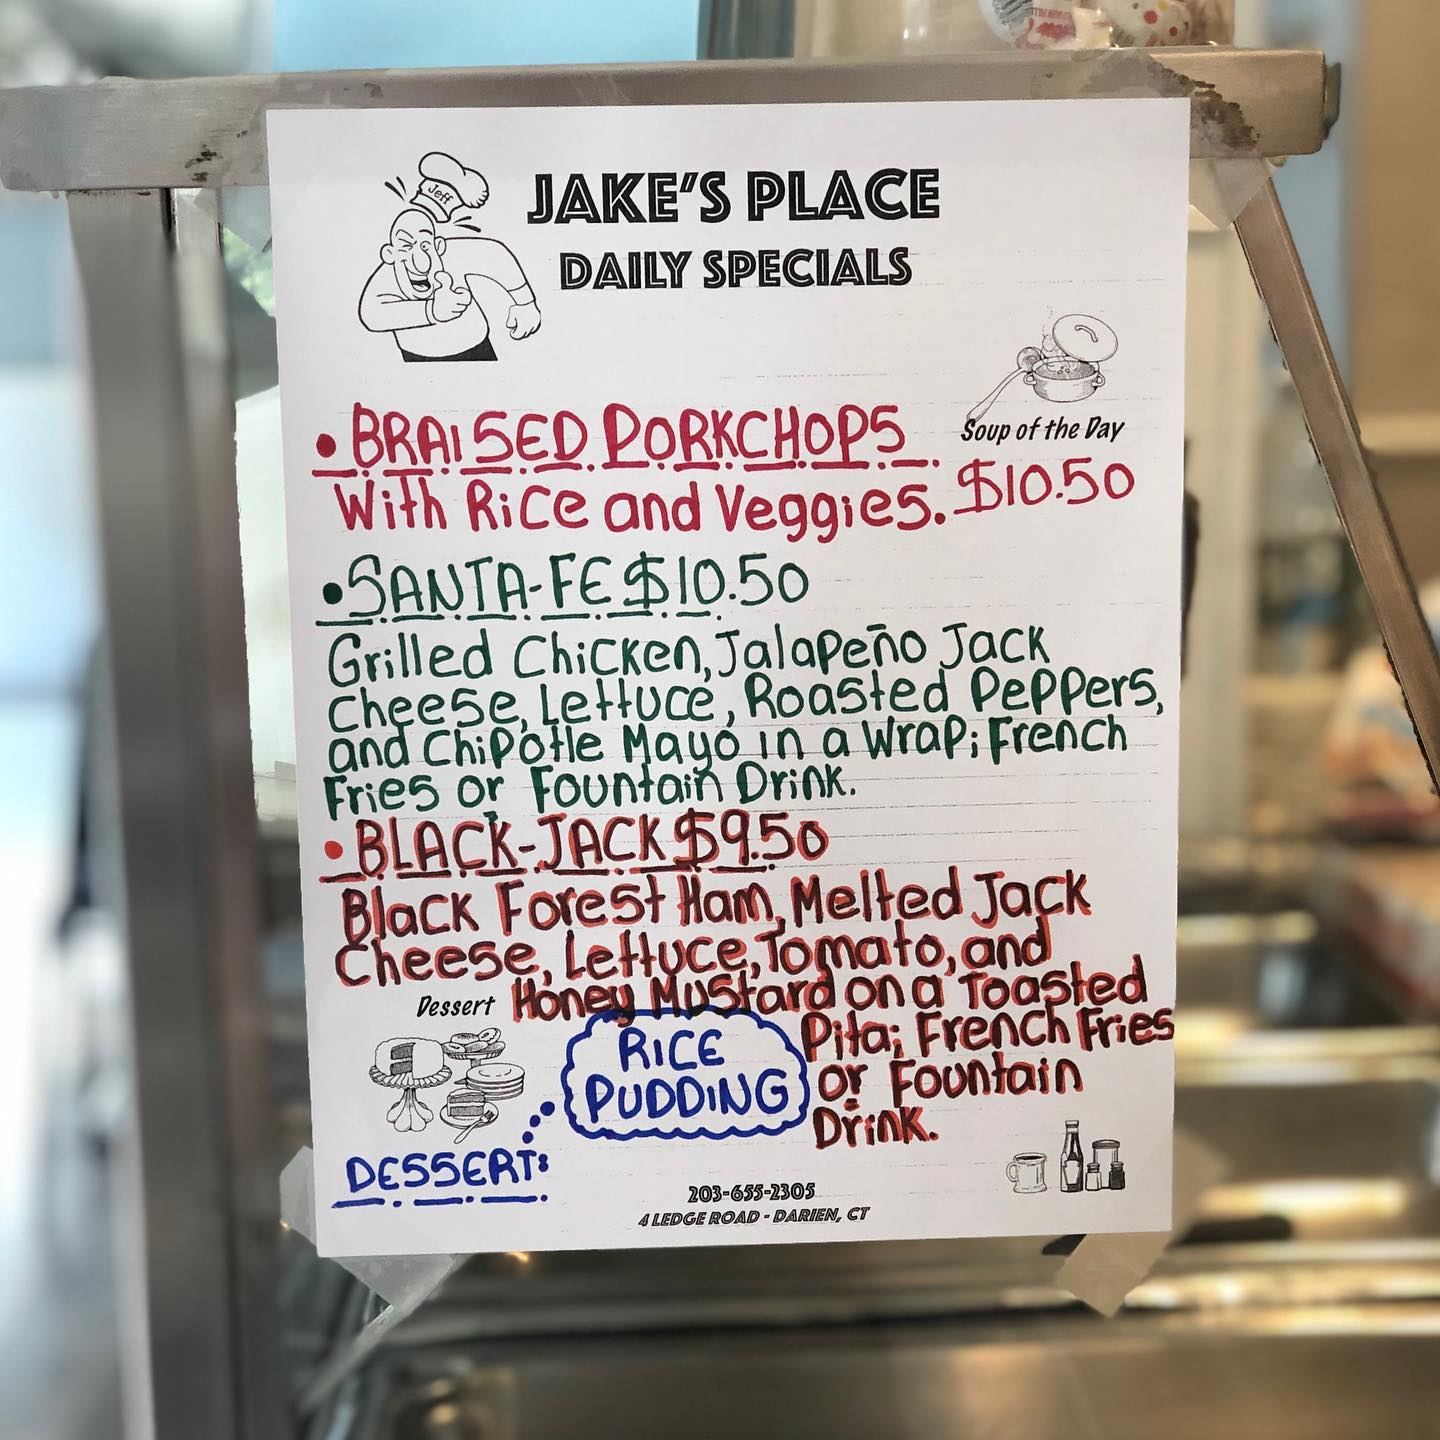 Jeff
JAKE'S PLACE
DAILY SPECIALS
Soup of the Day
• BRAISED PORKCHOPS
With Rice and Veggies. $10.50
• SANTA-FE $10.50
Grilled Chicken, Jalapeño Jack
Cheese, Lettuce, Roasted Peppers,
and Chipotle Mayo in a Wrap; French
Fries or Fountain Drink.
• BLACK-JACK $9.50
Black Forest Ham, Melted Jack
Cheese, Lettuce, Tomato, and
Honey Mustard on a Toasted
Pita; French Fries
or Fountain
Drink.
Dessert
RICE
PUDDING
DESSERT:
203-655-2305
4 LEDGE ROAD - DARIEN, CT